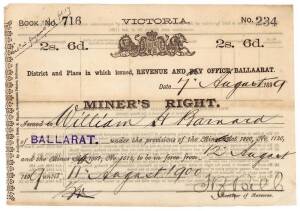 BOOK No. 716 VICTORIA. No. 234
2s. 6d. 2s. 6d.
District and Place in which issued, REVENUE AND PAY OFFICE, BALLAARAT.
Date 7th August 1899
MINER'S RIGHT.
Issued to William H Barnard
of BALLARAT. under the provisions of the Mines Act 1890, No. 1120,
and the Mines Act 1897, No. 1514, to be in force from 12 August
1899 to 11 August 1900
Receiver of Revenue.